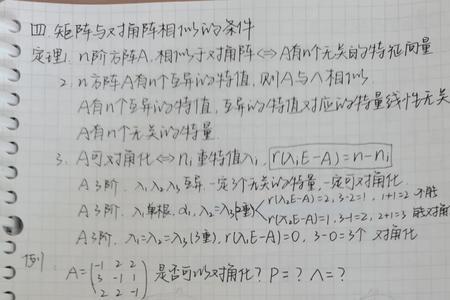 四. 矩阵与对角阵相似的条件
定理1. n阶方阵A, 相似于对角阵⇔A有n个无关的特征向量
2. n方阵A有n个互异的特值, 则A与Λ相似.
A有n个互异的特值, 互异的特值对应的特量线性无关
A有n个无关的特量.
3. A可对角化⇔nᵢ重特值λᵢ, r(λᵢE-A)=n-nᵢ
A 3阶. λ₁λ₂λ₃互异. 一定3个无关的特量, 一定可对角化.
A 3阶. λ₁单根. α₁, λ₂=λ₃(2重) r(λ₂E-A)=2, 3-2=1, 1+1=2 不能
r(λ₂E-A)=1, 3-1=2, 2+1=3 能对角
A 3阶, λ₁=λ₂=λ₃(3重), r(λ₁E-A)=0, 3-0=3个 对角化
例1
A=(-1 2 2
3 -1 1
2 2 -1) 是否可以对角化? P=? Λ=?